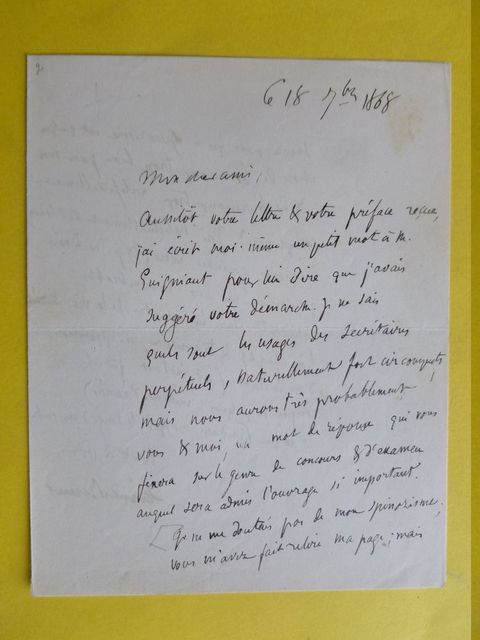 Ce 18 7bre 1868
Mon cher ami,
Aussitôt votre lettre & votre préface reçues,
j'ai écrit moi-même un petit mot à M.
Guigniaut pour lui dire que j'avais
suggéré votre démarche. Je ne sais
quels sont les usages des secrétaires
perpétuels, naturellement fort circonspects
mais nous aurons très probablement,
vous & moi, un mot de réponse qui vous
fixera sur le genre de concours & d'examen
auquel sera admis l'ouvrage si important.
Je ne me doutais pas de mon spinozisme;
vous m'avez fait relire ma page; mais